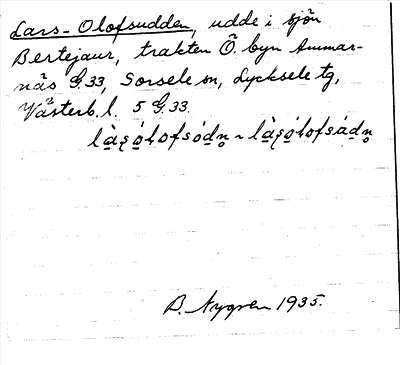 Lars-Olofsudden, udde i sjön
Bertejaur, trakten Ö. byn Ammar-
näs G.33, Sorsele sn, Lycksele tg,
Västerb. l. 5 G.33.
B. Nygren 1935.